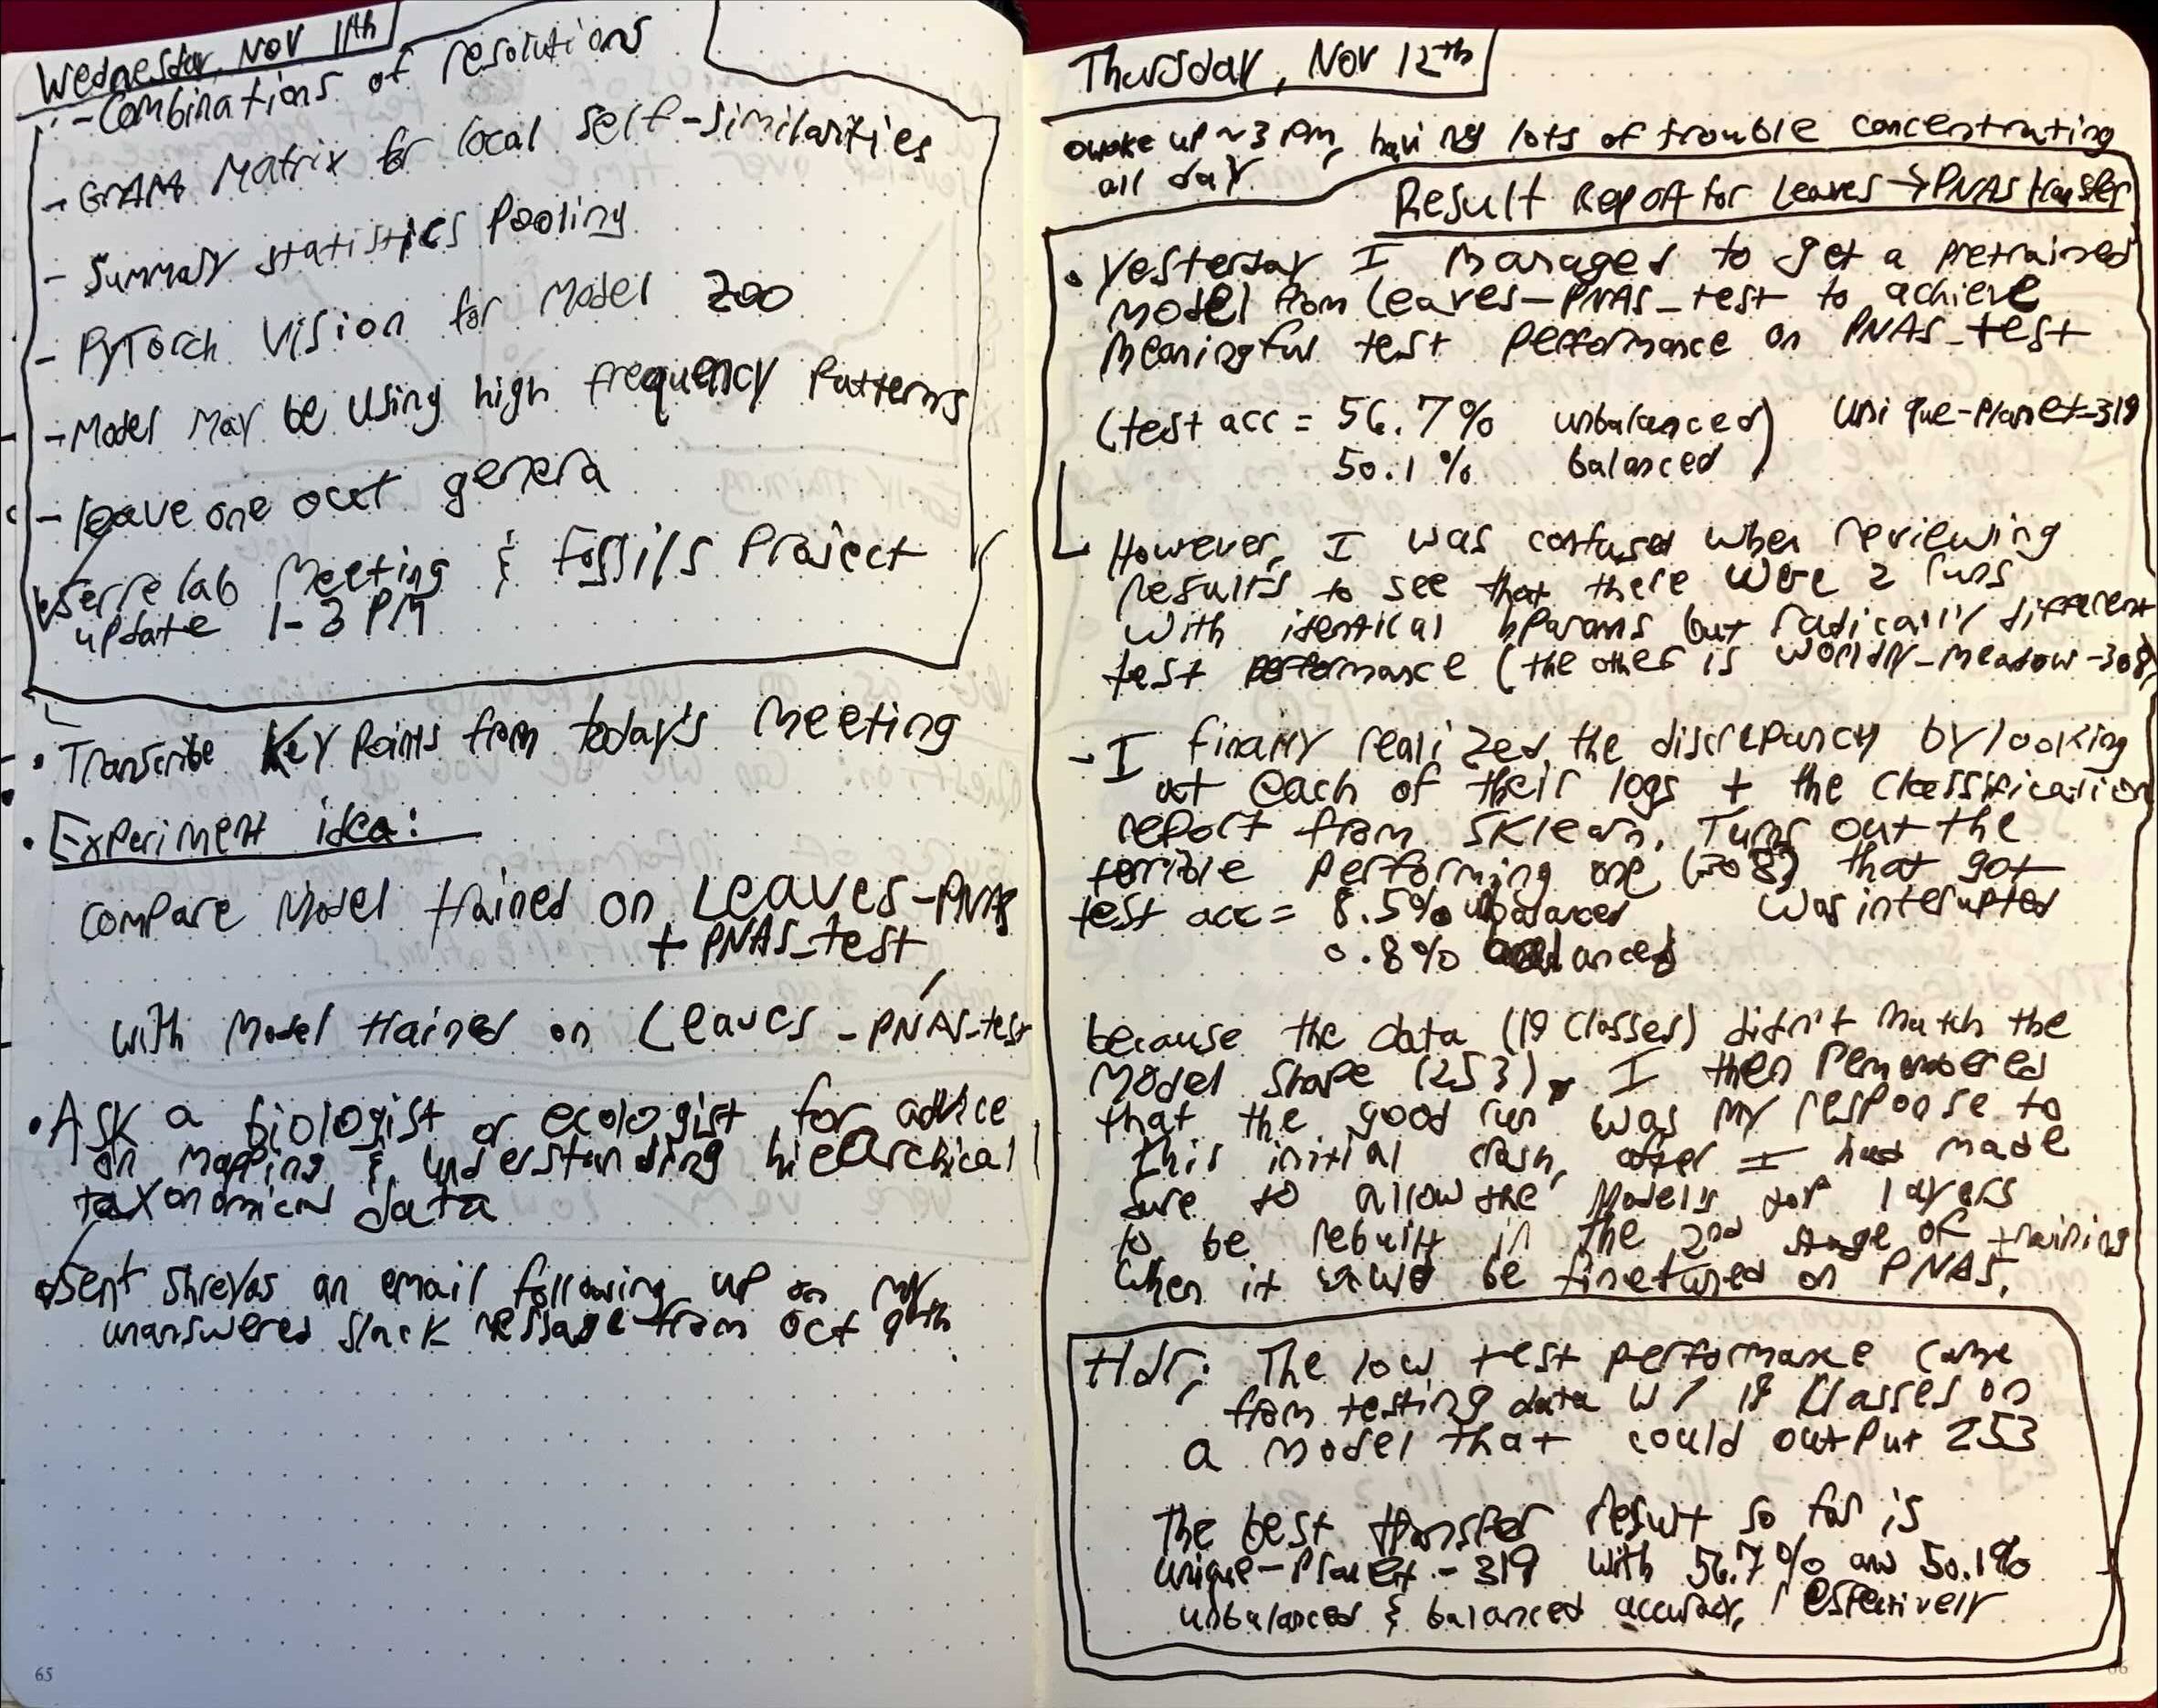 Wednesday, Nov 11th
- Combinations of resolutions
- GRAM Matrix for local self-similarities
- Summary statistics Pooling
- PyTorch Vision for Model Zoo
- Model May be using high frequency Patterns
- leave one out genera
Serre lab Meeting & Fossils Project
update 1-3 PM
• Transcribe Key Points from today's Meeting
• Experiment idea:
Compare Model trained on Leaves-PNAS
+ PNAS_test,
with Model trained on Leaves-PNAS_test
• Ask a biologist or ecologist for advice
on mapping & understanding hierarchical
taxonomical data
Sent Shreyas an email following up on my
unanswered slack message from Oct 9th.
65
Thursday, Nov 12th
awoke up ~3 PM, having lots of trouble concentrating
all day.
Result Report for Leaves → PNAS transfer
• Yesterday I managed to get a pretrained
model from Leaves-PNAS_test to achieve
meaningful test performance on PNAS_test
(test acc = 56.7% unbalanced) unique-Planet-319
50.1% balanced
However, I was confused when reviewing
results to see that there were 2 runs
with identical hparams but radically different
test performance (the other is worldly-meadow-308)
- I finally realized the discrepancy by looking
at each of their logs + the classification
report from sklearn. Turns out the
terrible performing one (308) that got
test acc = 8.5% unbalanced was interupted
0.8% balanced
because the data (19 classes) didn't match the
Model shape (253). I then remembered
that the "good run" was my response to
this initial crash, after I had made
sure to allow the model's top layers
to be rebuilt in the 2nd stage of training
when it would be finetuned on PNAS.
tldr; The low test performance came
from testing data w/ 19 classes on
a model that could output 253
The best transfer result so far is
unique-Planet-319 with 56.7% and 50.1%
unbalanced & balanced accuracy, respectively
66